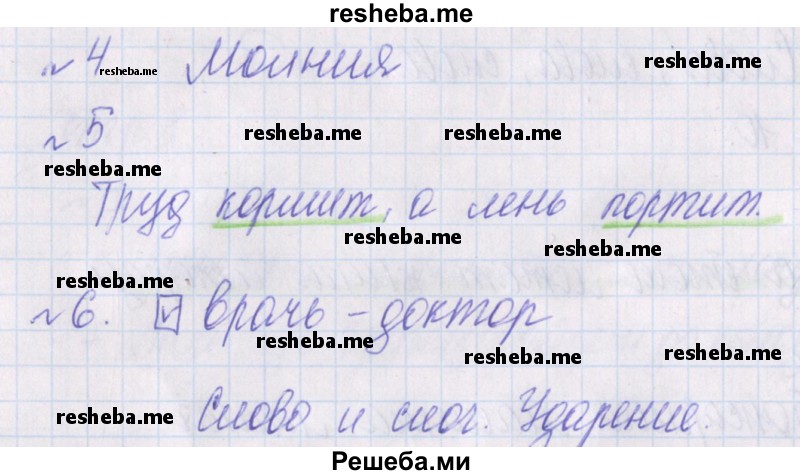 resheba.me
№4 resheba.me Молния resheba.me
№5 resheba.me resheba.me
resheba.me
Труд кормит, а лень портит.
resheba.me resheba.me
resheba.me
№6. врачь – доктор
resheba.me resheba.me resheba.me
resheba.me Слово и слог. Ударение.
resheba.me resheba.me
Решеба.ми